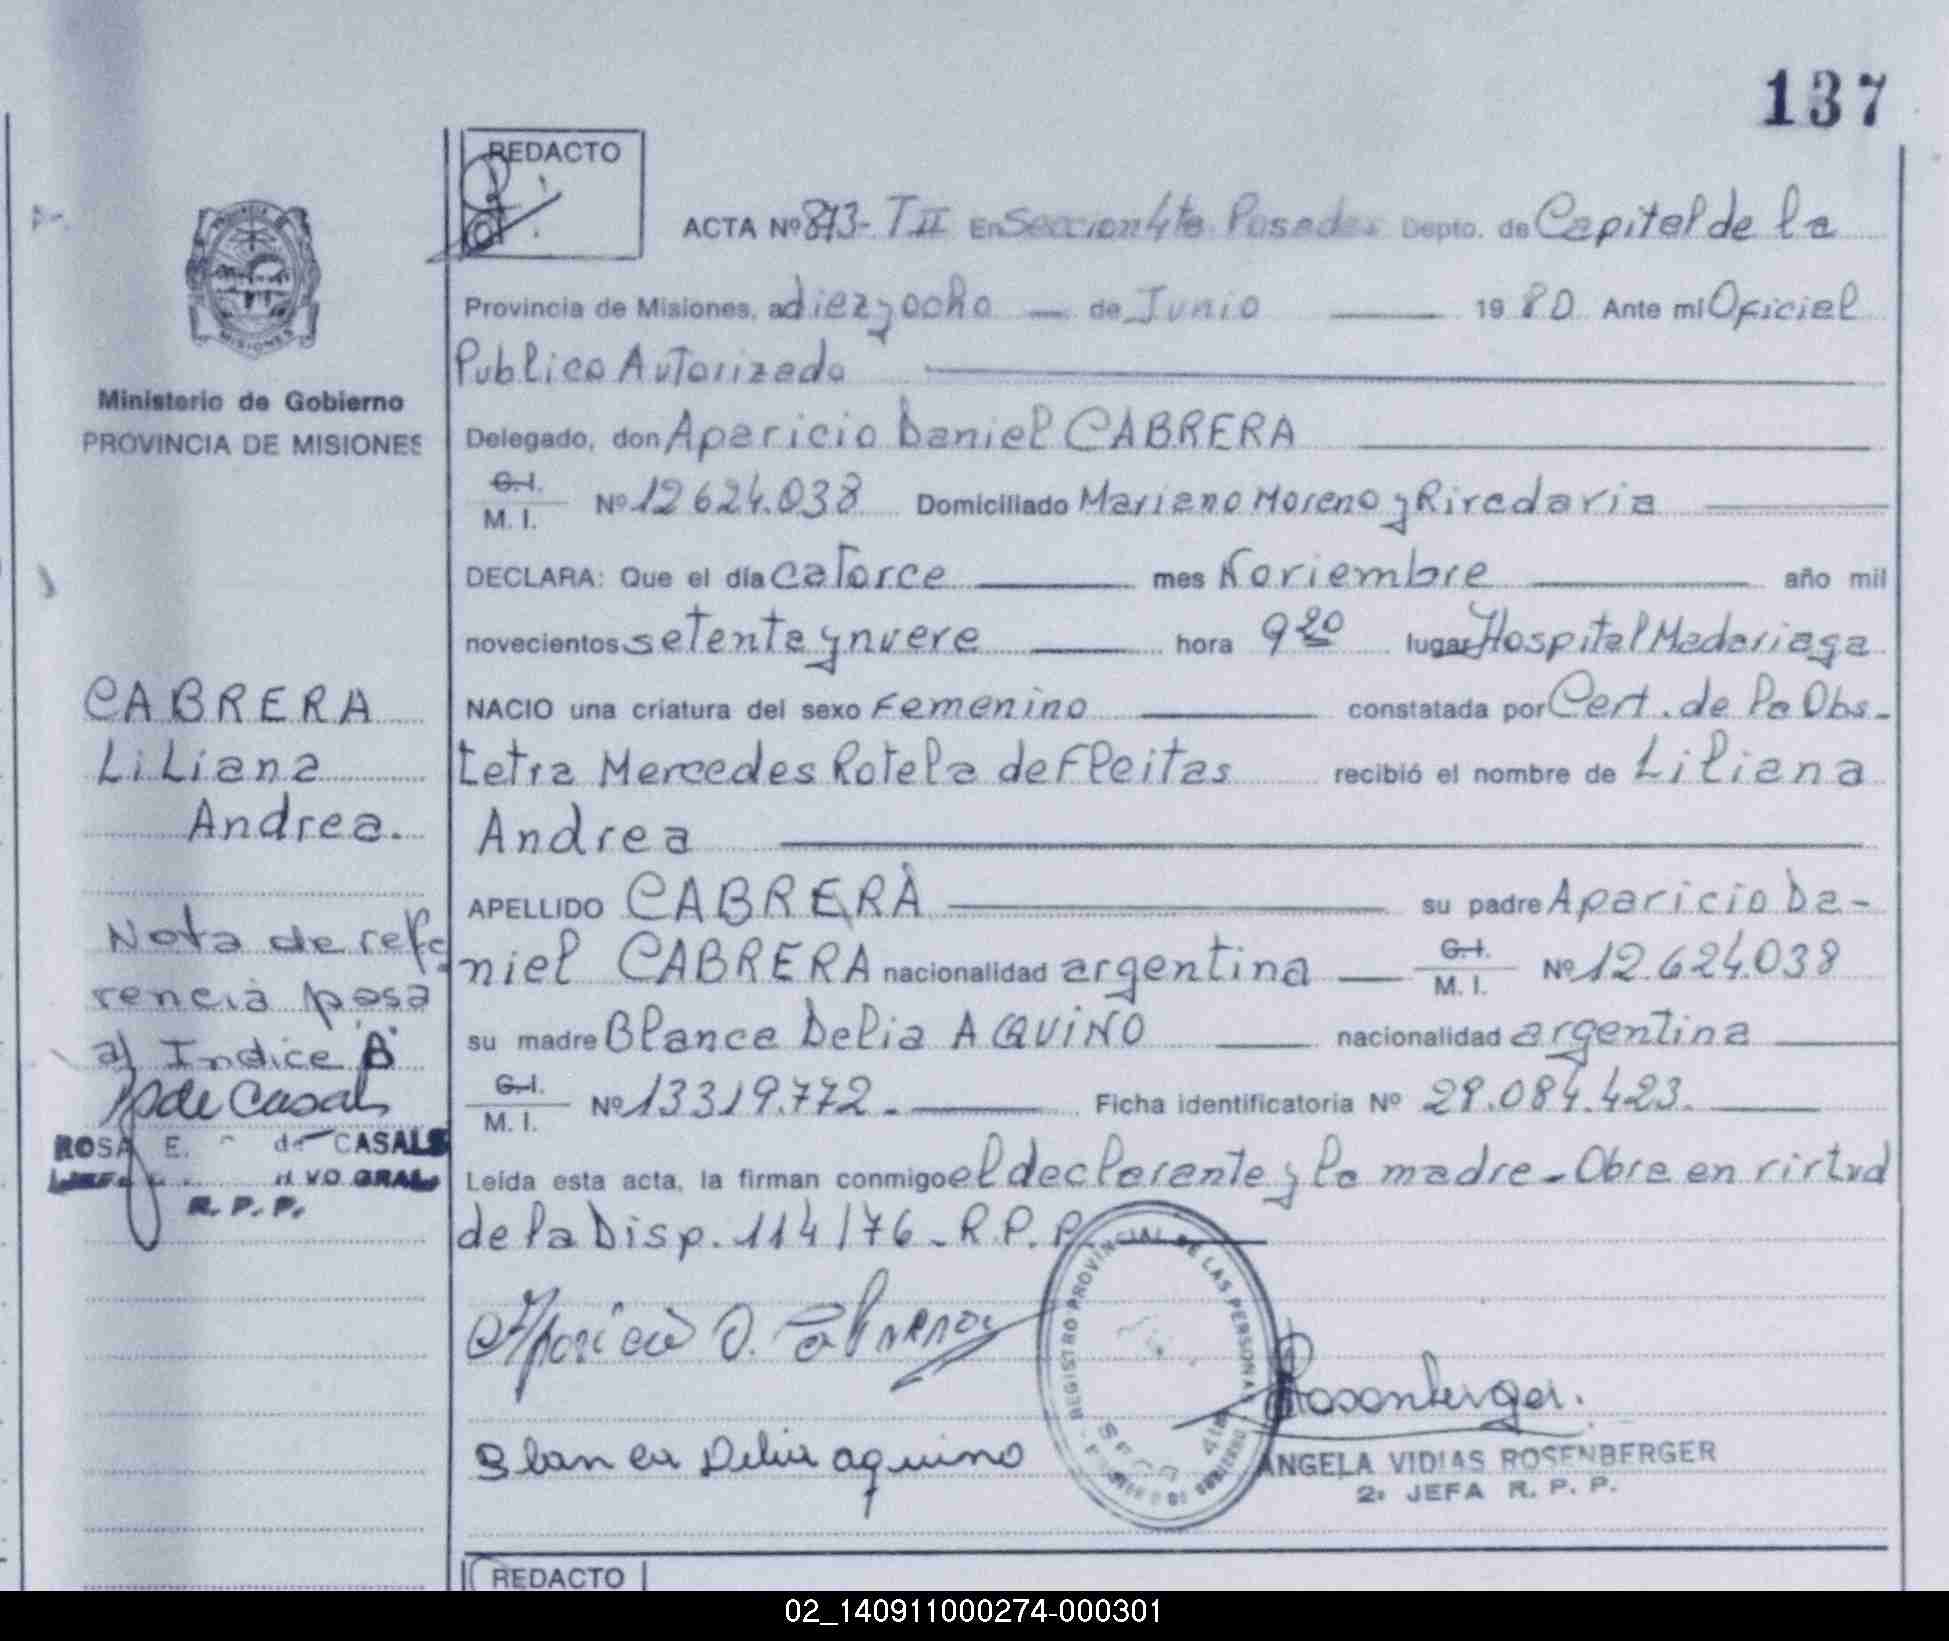 137
REDACTO
ACTA Nº 873- T II En Seccion 4ta Posadas Depto. de Capital de la
Provincia de Misiones, a diez y ocho — de Junio — 1980 Ante mi Oficial
Publico Autorizado
Delegado, don Aparicio Daniel CABRERA
C.I. / M. I. Nº 12624.038 Domiciliado Mariano Moreno y Rivadavia
DECLARA: Que el día catorce — mes Noviembre — año mil
novecientos setenta y nueve — hora 9 20 lugar Hospital Madariaga
NACIO una criatura del sexo Femenino — constatada por Cert. de la Obs-
tetra Mercedes Rotela de Fleitas recibió el nombre de Liliana
Andrea
APELLIDO CABRERA — su padre Aparicio Da-
niel CABRERA nacionalidad argentina — C.I. / M. I. Nº 12.624.038
su madre Blanca Delia AQUINO — nacionalidad argentina —
C.I. / M. I. Nº 13319.772.- Ficha identificatoria Nº 29.084.423.
Leída esta acta, la firman conmigo el declarante y la madre - Obra en virtud
de la Disp. 114/76 - R.P.P.
Aparicio D. Cabrera
Blanca Delia aquino
REGISTRO PROVINCIAL DE LAS PERSONAS
SECC 4ta
Rosenberger.
ANGELA VIDIAS ROSENBERGER
2ª JEFA R. P. P.
PROVINCIA DE MISIONES
Ministerio de Gobierno
PROVINCIA DE MISIONES
CABRERA
Liliana
Andrea.
Nota de refe
rencia pasa
al Indice "B"
de Casals
ROSA E. de CASALS
R. P. P.
REDACTO
02_140911000274-000301